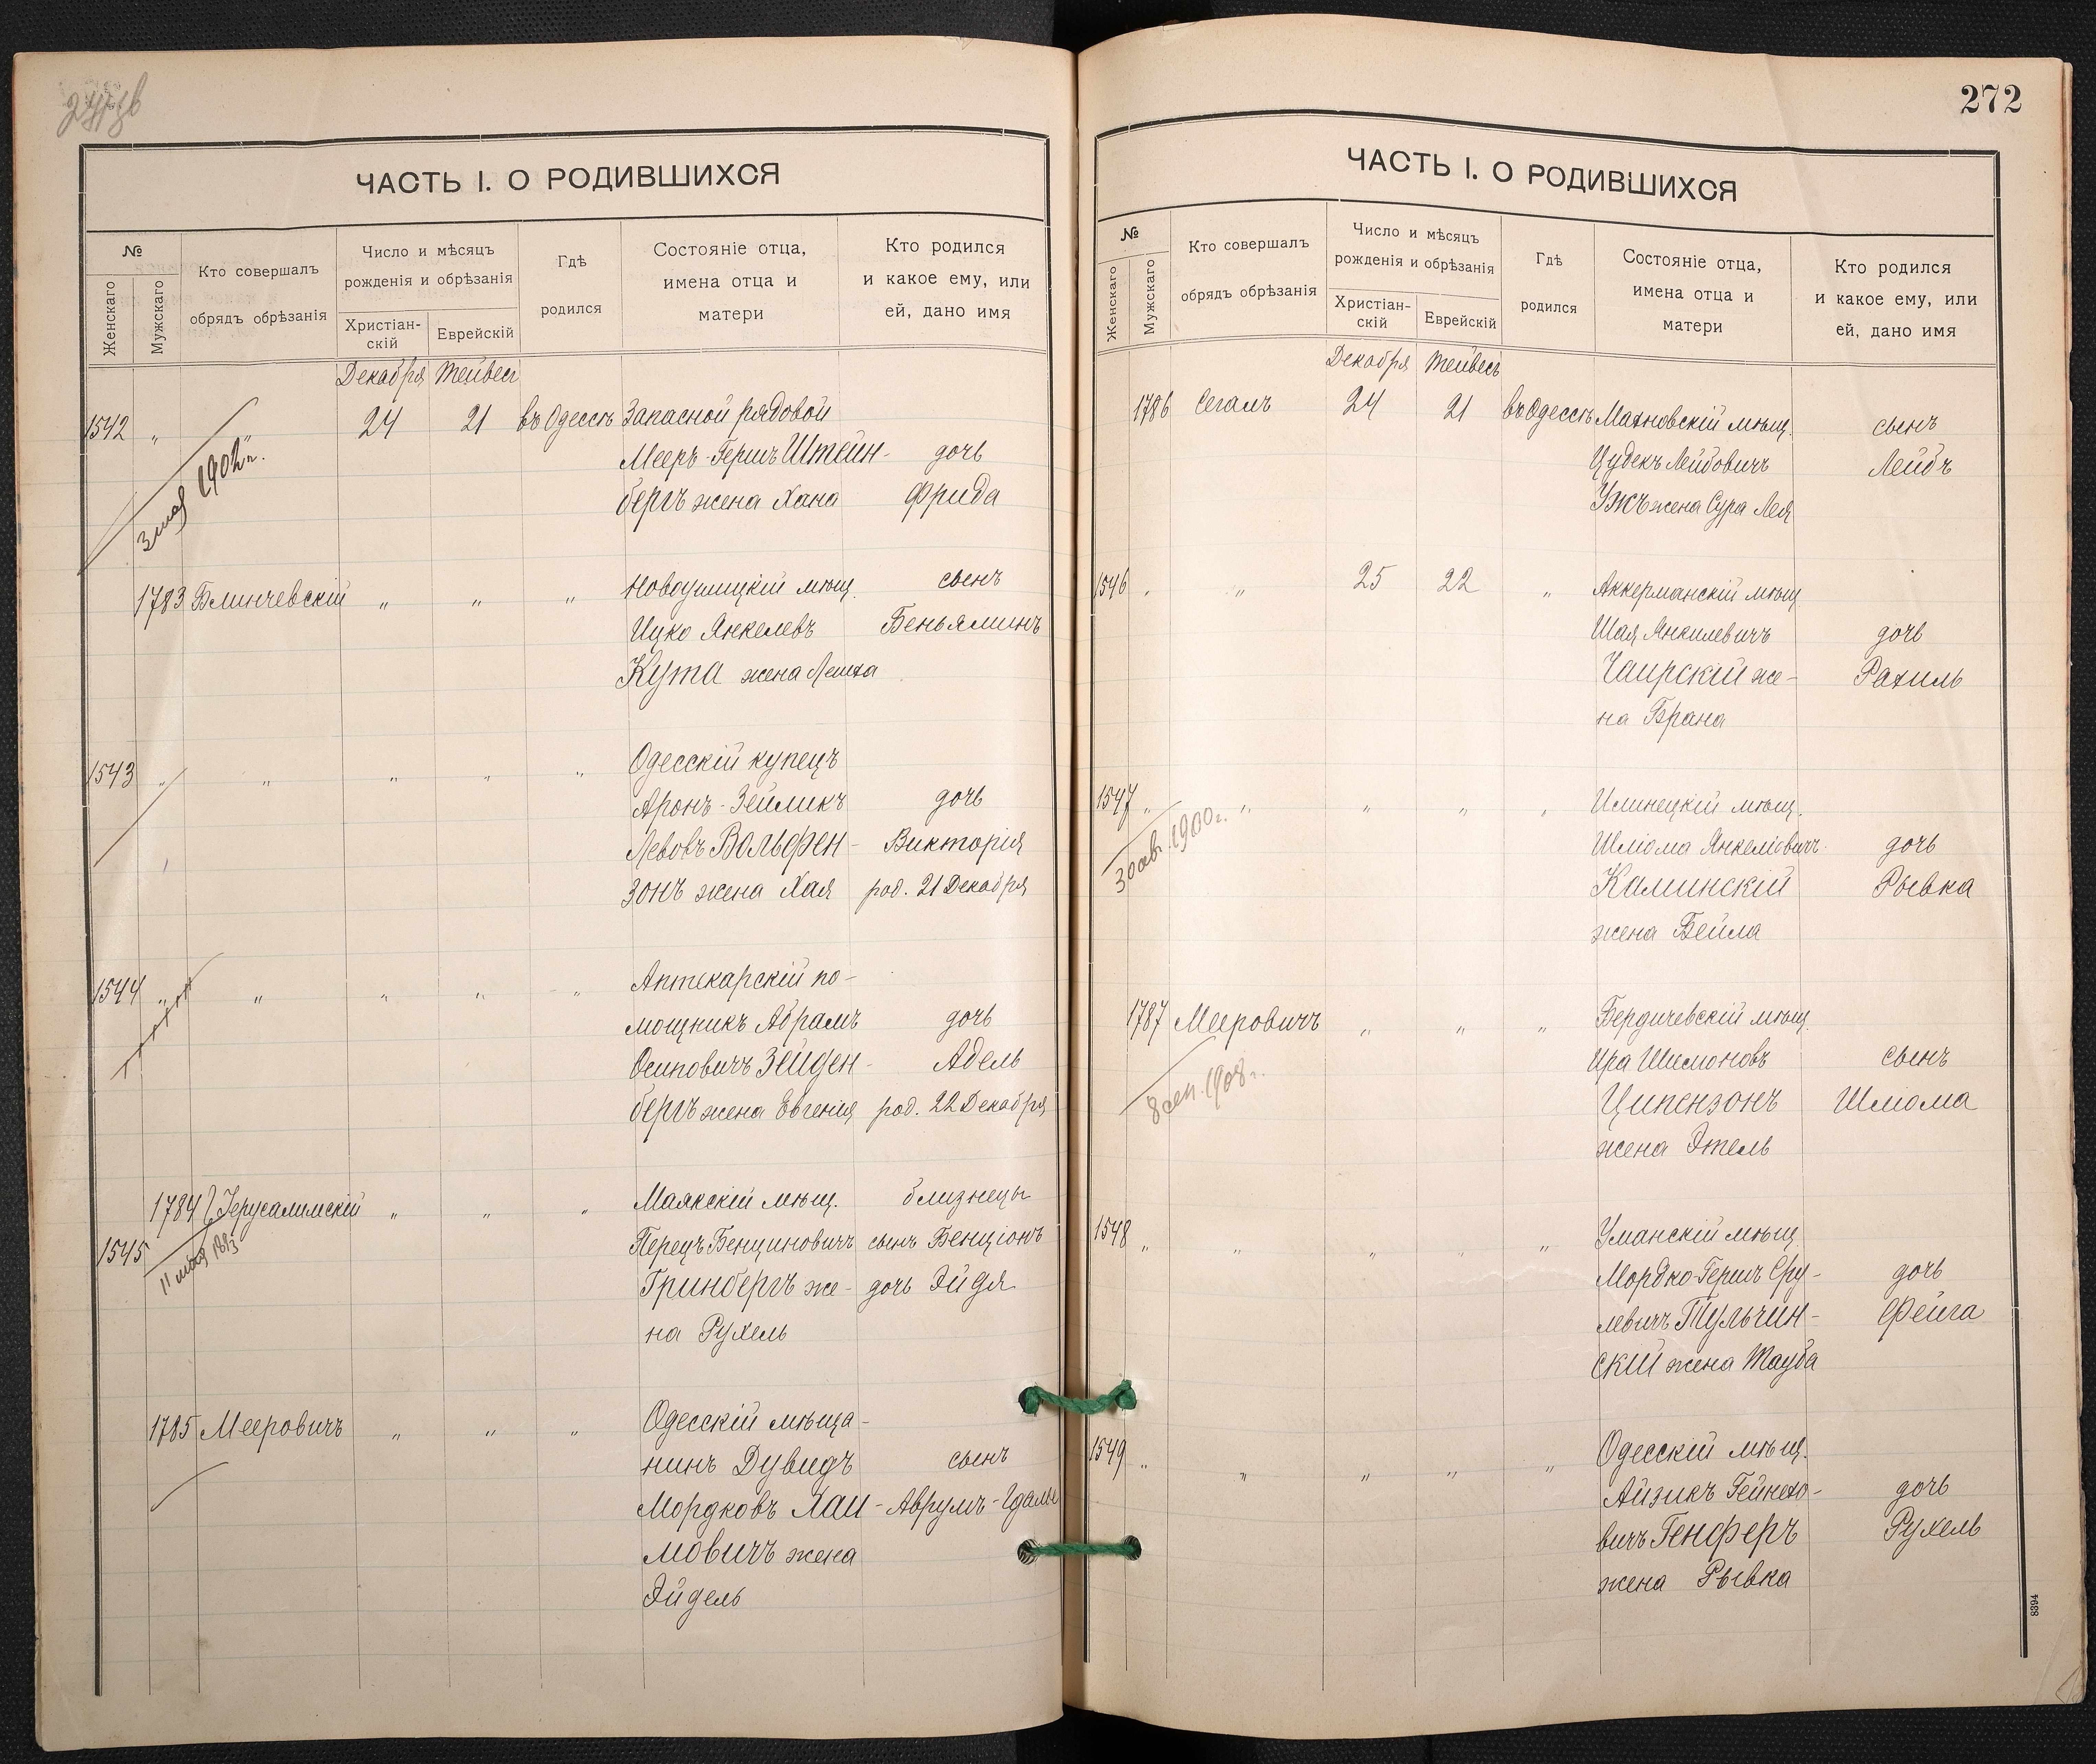 ЧАСТЬ I. О РОДИВШИХСЯ
№
Женскаго
Мужскаго
Кто совершалъ
обрядъ обрѣзанія
Число и мѣсяцъ
рожденія и обрѣзанія
Христіан-
скій
Еврейскій
Гдѣ
родился
Состояніе отца,
имена отца и
матери
Кто родился
и какое ему, или
ей, дано имя
Декабря Тейвесъ
1542 „ „ 24 21 въ Одессѣ Запасной рядовой
Мееръ-Гершъ Штейн- дочь
бергъ жена Хана Фрида
3 мая 1902 г.
1783 Блинчевскій „ „ „ Новоушицкій мѣщ. сынъ
Ицко Янкелевъ Беньяминъ
Кута жена
1543 „ „ „ „ „ Одесскій купецъ
Аронъ-Зейликъ дочь
Левовъ Вольфен- Викторія
зонъ жена Хая род. 21 Декабря
1544 „ „ „ „ „ Аптекарскій по-
мощникъ Абрамъ дочь
Осиповичъ Зейден- Адель
бергъ жена Евгенія род. 22 Декабря
1784 Іерусалимскій „ „ „ Маякскій мѣщ. близнецы
1545 Перецъ Бенциновичъ сынъ Бенціонъ
11 1893
Гринбергъ же- дочь Эйдя
на Рухель
1785 Мееровичъ „ „ „ Одесскій мѣща-
нинъ Дувидъ сынъ
Мордковъ Хаи- Аврумъ-Гдаль
мовичъ жена
Эйдель
272
ЧАСТЬ I. О РОДИВШИХСЯ
№
Женскаго
Мужскаго
Кто совершалъ
обрядъ обрѣзанія
Число и мѣсяцъ
рожденія и обрѣзанія
Христіан-
скій
Еврейскій
Гдѣ
родился
Состояніе отца,
имена отца и
матери
Кто родился
и какое ему, или
ей, дано имя
Декабря Тейвесъ
1786 Сегалъ 24 21 въ Одессѣ Махновскій мѣщ. сынъ
Цудекъ Лейбовичъ Лейбъ
Ужъ жена Сура Лея
1546 „ „ 25 22 „ Аккерманскій мѣщ
Шая Янкилевичъ дочь
Чаирскій же- Рахиль
на Брана
1547 „ „ „ „ „ Илинецкій мѣщ.
Шліома Янкеліовичъ дочь
30 авг. 1900 г.
Каминскій Рывка
жена Бейла
1787 Мееровичъ „ „ „ Бердичевскій мѣщ.
Ира Шимоновъ сынъ
8 сен. 1908 г.
Ципензонъ Шліома
жена Этель
1548 „ „ „ „ „ Уманскій мѣщ
Мордко-Гершъ Сру- дочь
левичъ Тульчин- Фейга
скій жена Тауба
1549 „ „ „ „ „ Одесскій мѣщ.
Айзикъ Гейнехо- дочь
вичъ Генферъ Рухель
жена Рывка
8394